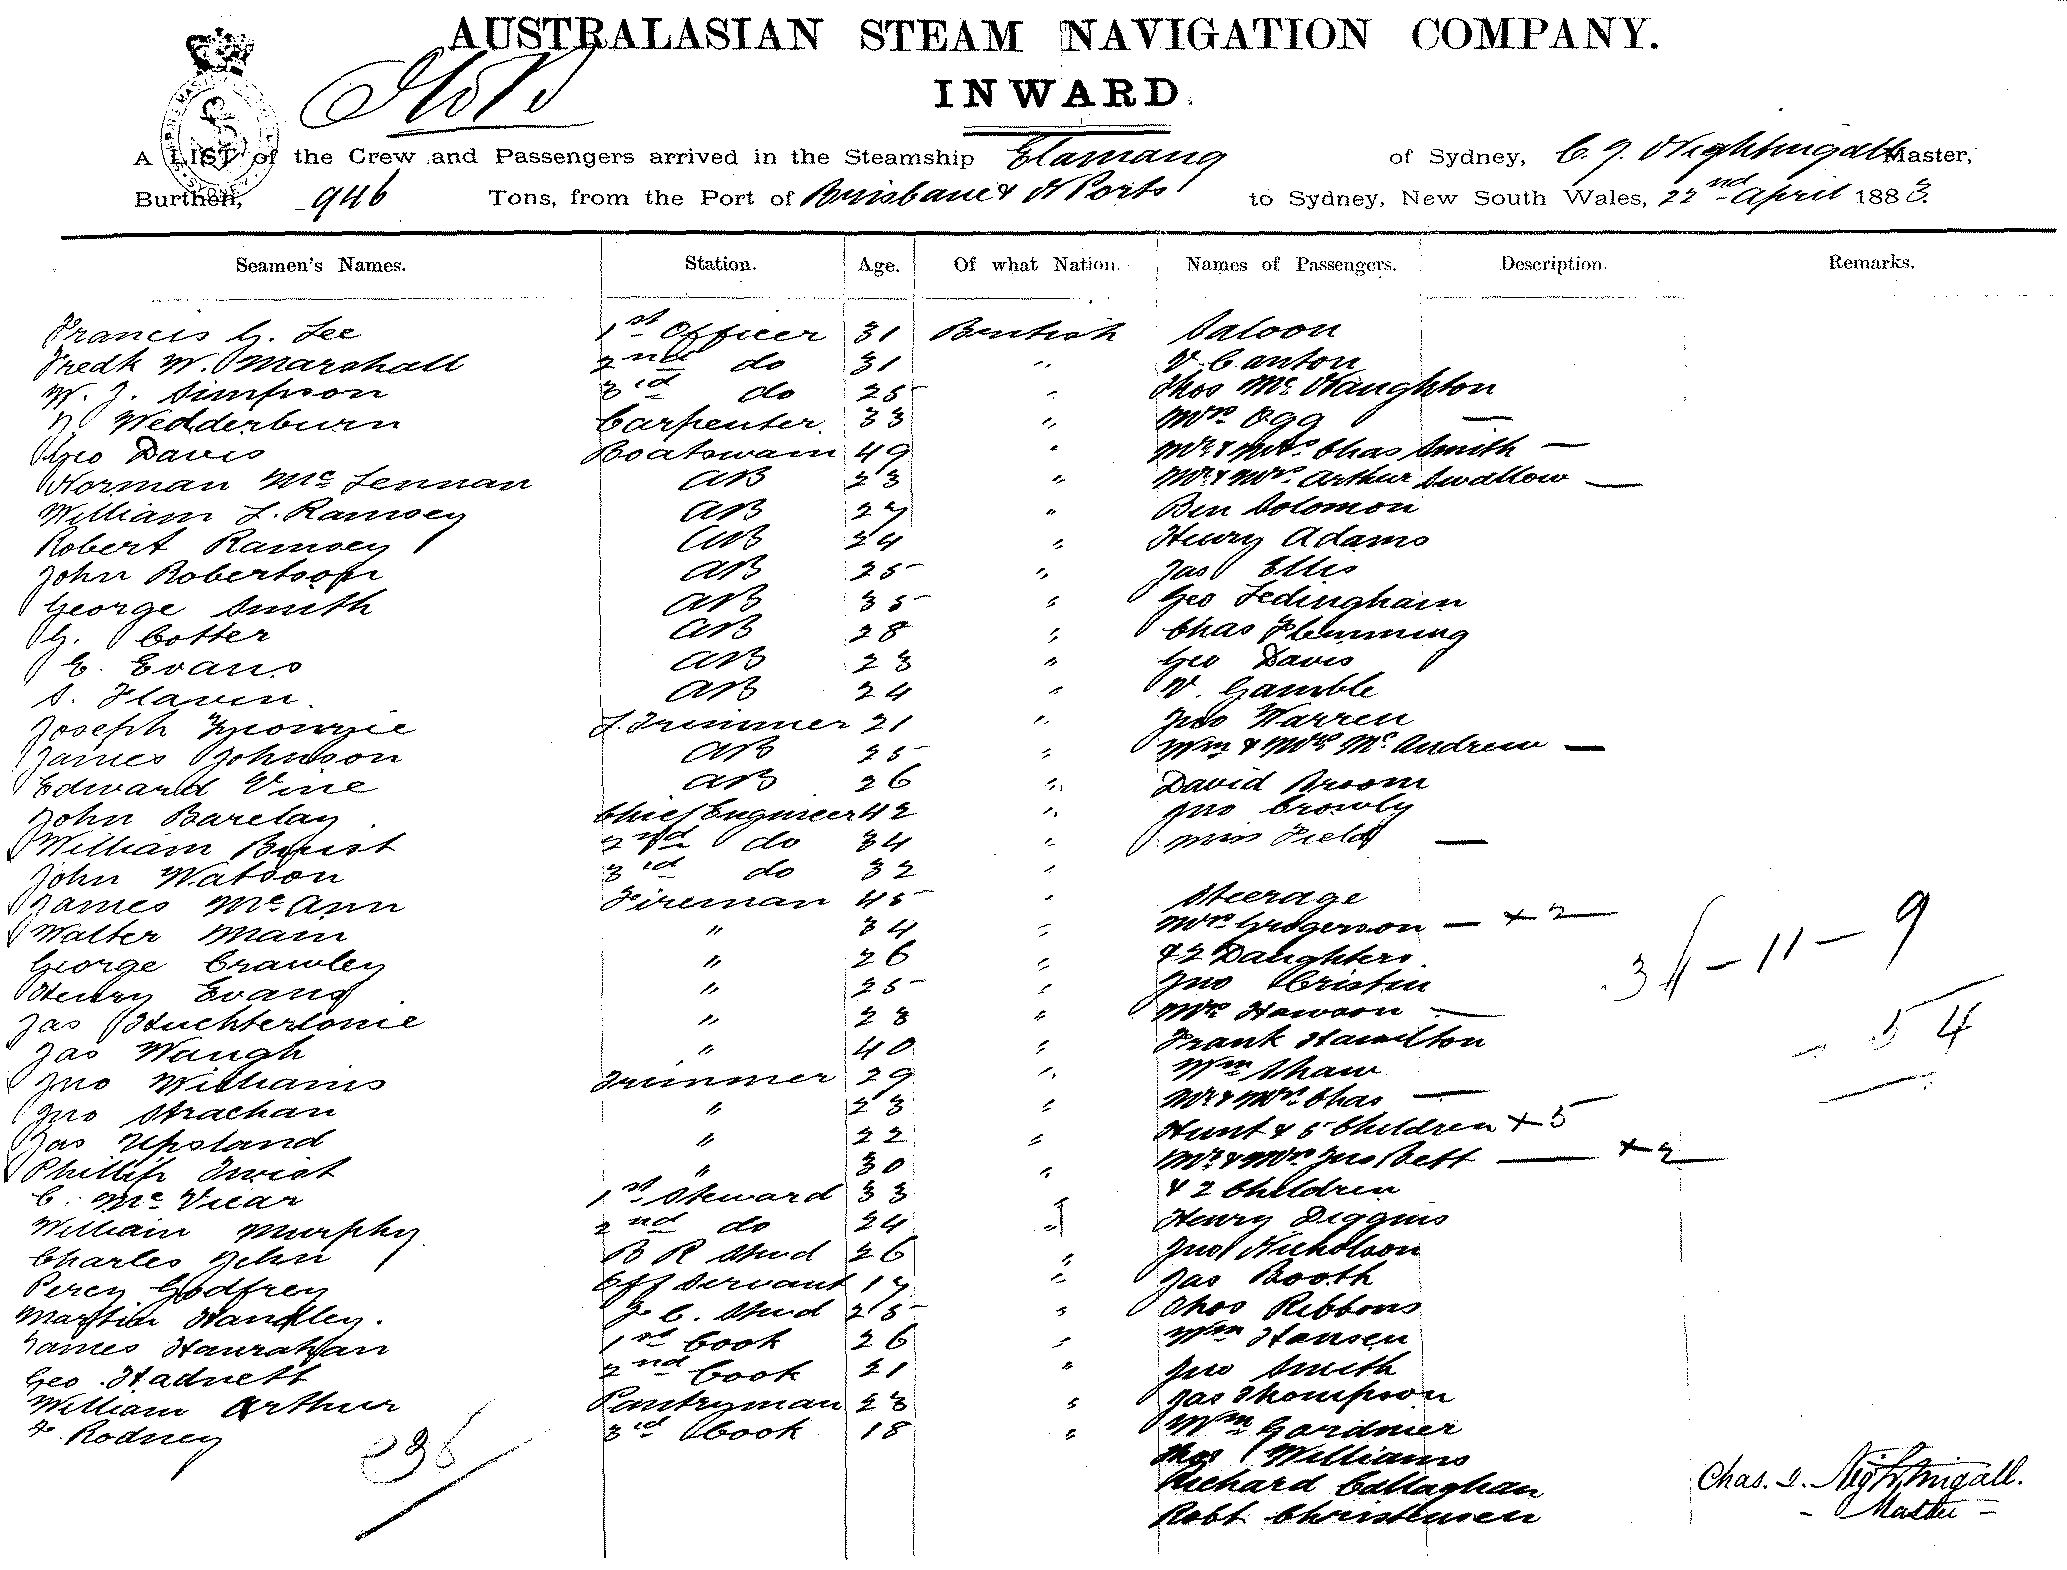 AUSTRALASIAN STEAM NAVIGATION COMPANY.
INWARD.
A LIST of the Crew and Passengers arrived in the Steamship Elamang of Sydney, C. J. Nightingall Master,
Burthen, 946 Tons, from the Port of Brisbane & N Ports to Sydney, New South Wales, 22nd April 1883.
Seamen's Names. Station. Age. Of what Nation. Names of Passengers. Description. Remarks.
Francis G. Lee 1st Officer 31 British Saloon
Fredk W. Marshall 2nd do 31 " V. Canton
W. J. Simpson 3rd do 25 " Thos McNaughton
Wedderburn Carpenter 33 " Mrs Ogg —
Geo Davis Boatswain 49 " Mr & Mrs Chas Smith —
Norman McLennan AB 23 " Mr & Mrs Arthur Swallow —
William L. Ramsey AB 27 " Ben Solomon
Robert Ramsey AB 24 " Henry Adams
John Robertson AB 25 " Jas Ellis
George Smith AB 35 " Geo Ledingham
G. Cotter AB 28 " Chas Flemming
E. Evans AB 23 " Geo Davis
S. Flavin AB 24 " V. Gamble
Joseph L. Trimmer 21 " Jno Warren
James Johnson AB 25 " Wm & Mrs McAndrew —
Edward Vine AB 26 " David Broom
John Barclay Chief Engineer 42 " Jno Crowly
William Buist 2nd do 34 " Miss Field —
John Watson 3rd do 32 "
James McAnn Fireman 45 " Steerage
Walter Main " 34 " Mrs Gregerson — +2
George Crawley " 26 " & 2 Daughters 34 – 11 – 9
Henry Evans " 25 " Jno Cristin
Jas Huchterlonie " 23 " Mrs Hawson — 54
Jas Waugh " 40 " Frank Hamilton
Jno Williams Trimmer 29 " Wm Shaw
Jno Strachan " 23 " Mr & Mrs Chas —
Jas Upsland " 22 " Hunt & 5 Children +5
Phillip Twist " 30 " Mr & Mrs Jno Bett — +2
C. McVicar 1st Steward 33 & 2 Children
William Murphy 2nd do 24 " Henry Diggins
Charles Jehn B R Stwd 26 " Jno Nicholson
Percy Godfrey Off Servant 17 " Jas Booth
Martin Handley. F. C. Stwd 25 " Thos Ribbons
James Hanrahan 1st Cook 26 " Wm Hansen
Geo. Hadnett 2nd Cook 21 " Jno Smith
William Arthur Pantryman 23 " Jas Thompson
F. Rodney 3rd Cook 18 " Wm Gardner
Thos Williams
Richard Callaghan
Robt Christensen
Chas. J. Nightingall.
– Master –